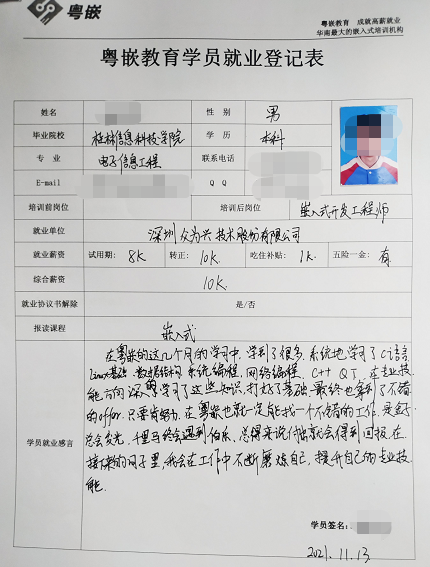 粤嵌
粤嵌教育 成就高薪就业
华南最大的嵌入式培训机构
粤嵌教育学员就业登记表
姓名 性 别 男
毕业院校 桂林信息科技学院 学 历 本科
专 业 电子信息工程 联系电话
E-mail Q Q
培训前岗位 培训后岗位 嵌入式开发工程师
就业单位 深圳众为兴技术股份有限公司
就业薪资 试用期: 8K 转正: 10K 吃住补贴: 1K 五险一金: 有
综合薪资 10K
就业协议书解除 是/否
报读课程 嵌入式
学员就业感言
在粤嵌的这几个月的学习中,学到了很多,系统地学习了C语言
Linux基础,数据结构,系统编程,网络编程,C++ QT,在专业技
能方向深入学习了这些知识,打好了基础,最终也拿到了不错
的offer.只要肯努力,在粤嵌也就一定能找一个不错的工作,是金子
总会发光,千里马终会遇到伯乐,总得来说付出就会得到回报,在
接下来的日子里,我会在工作中不断磨炼自己,提升自己的专业技
能.
学员签名:
2021.11.13